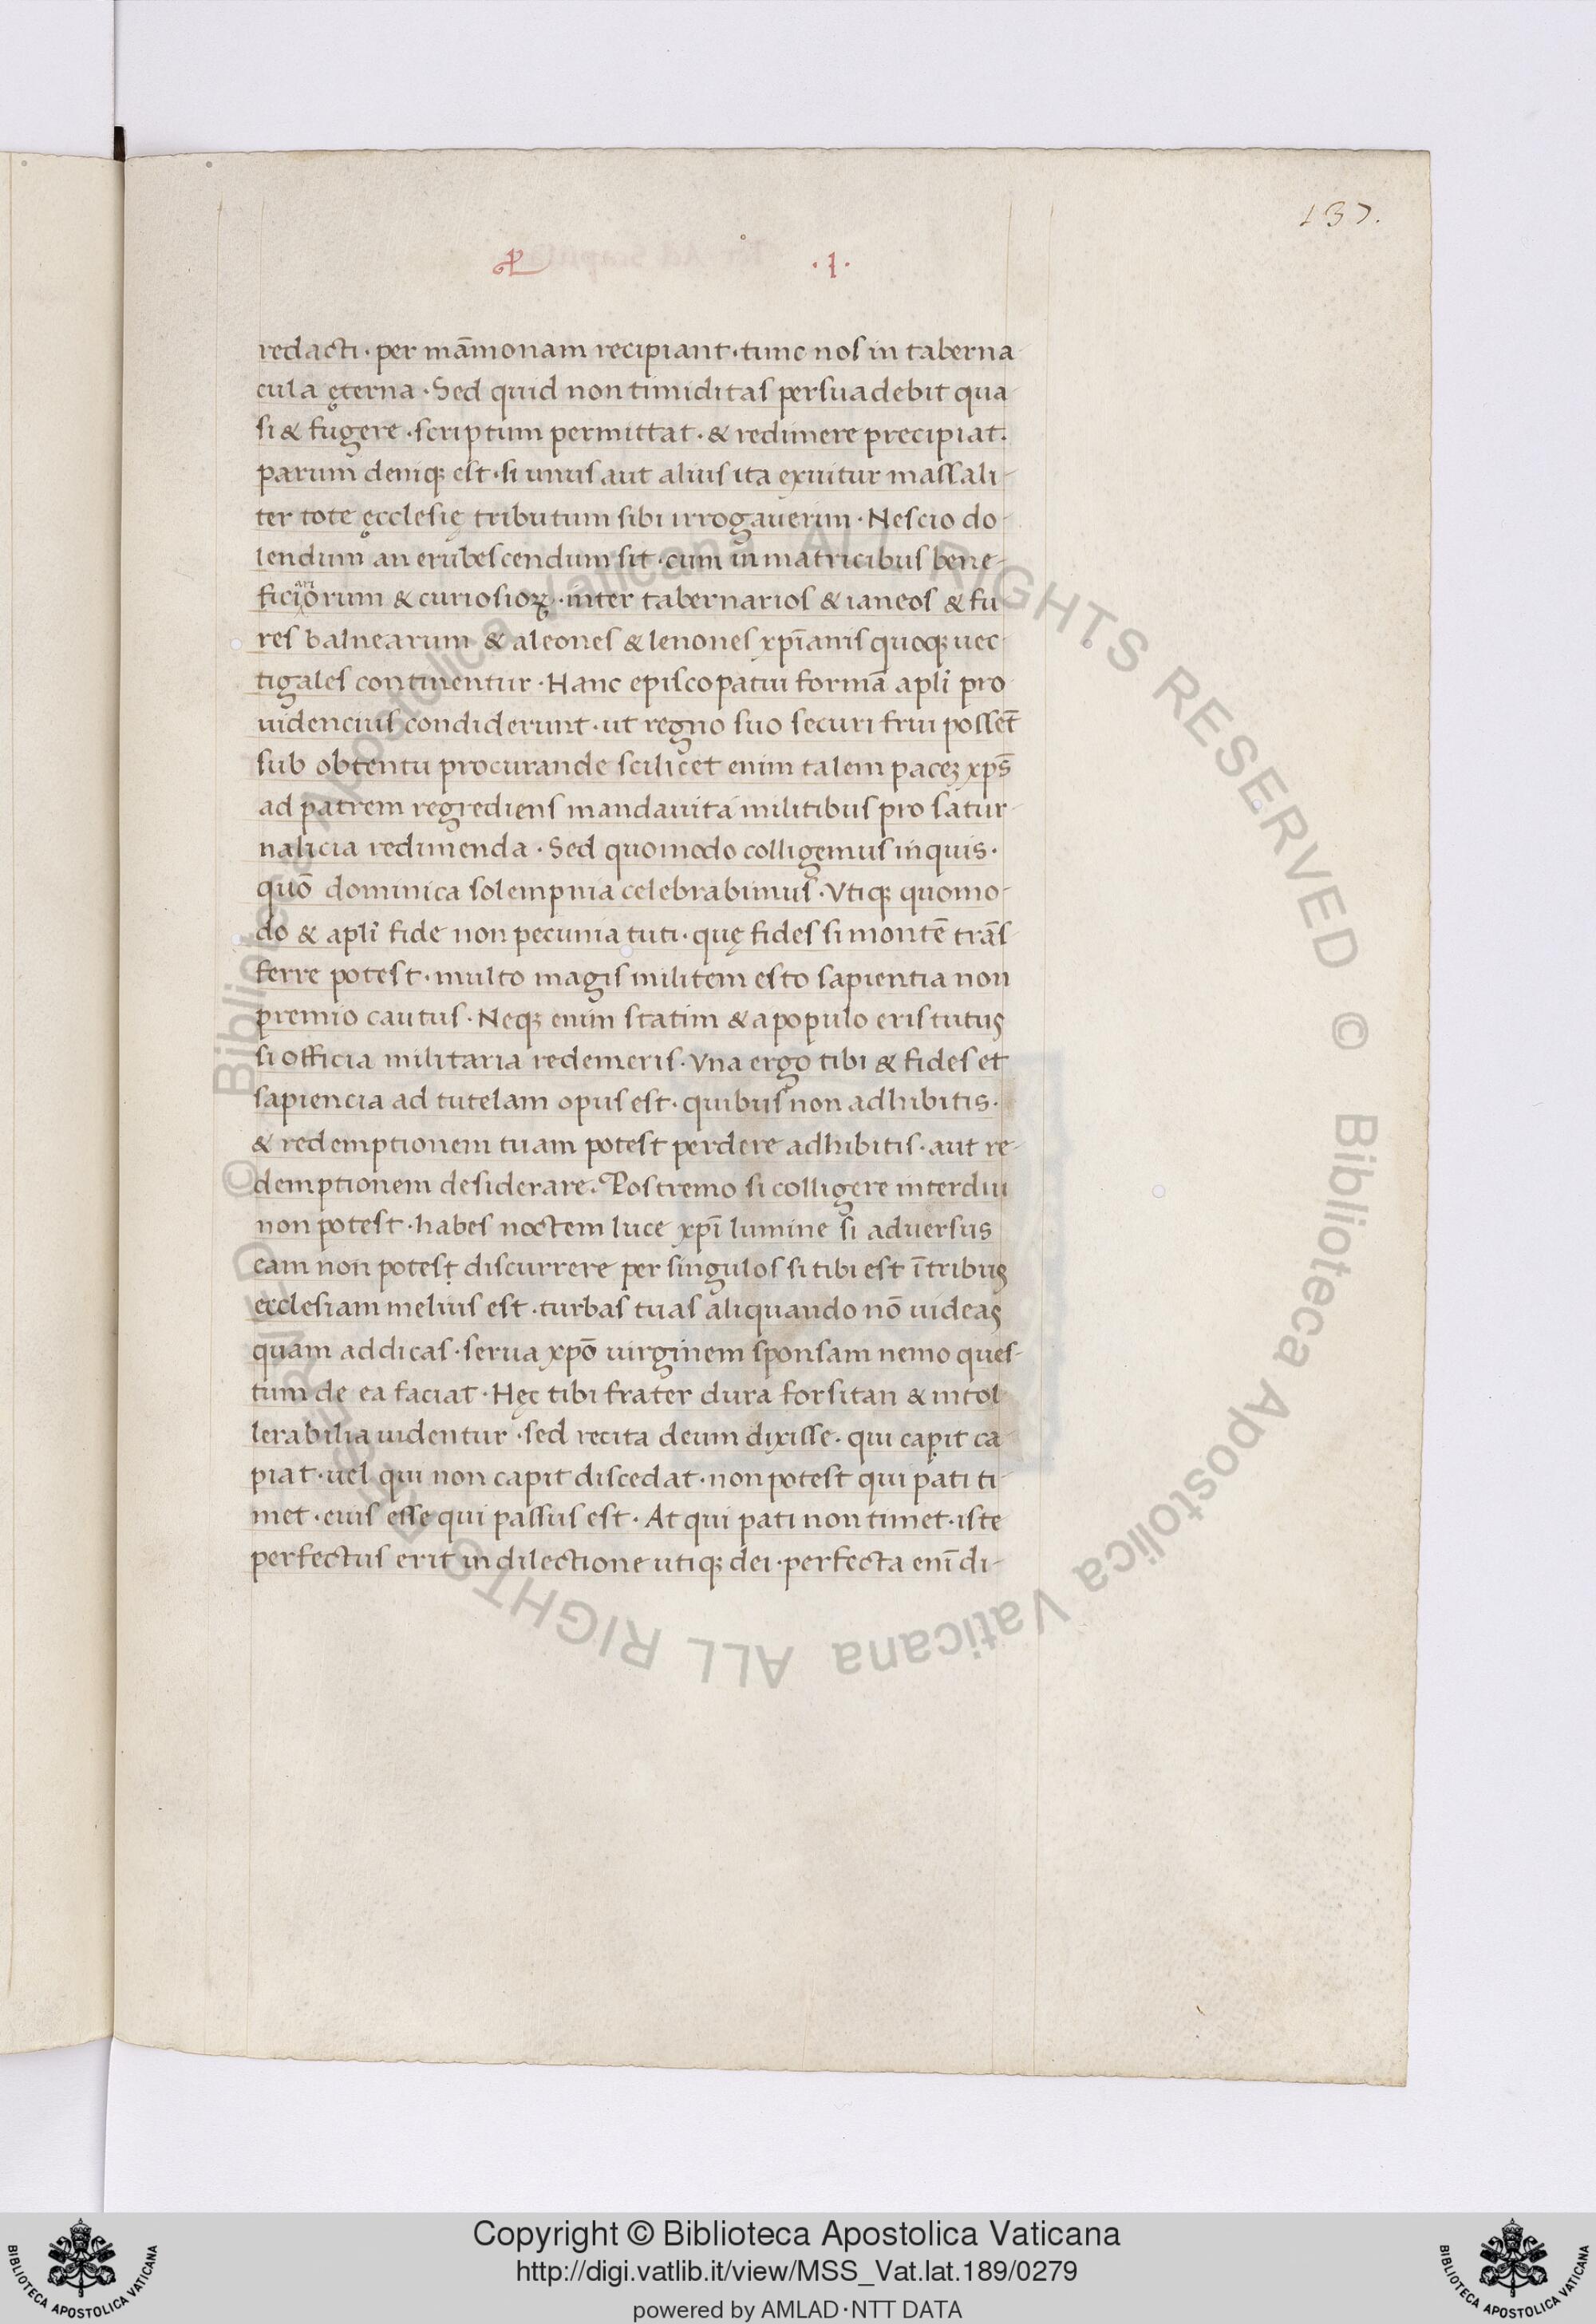 137.
·I·
redacti · per māmonam recipiant · tunc nos in taberna
cula ęterna · Sed quid non timiditas persuadebit qua
si & fugere · scriptum permittat · & redimere precipiat.
parum deniqꝫ est · si unus aut alius ita exuitur massali-
ter tote ęcclesię tributum sibi irrogauerun · Nescio do-
lendum an erubescendum sit · cum in matricibus bene-
ari
ficiorum & curiosioꝝ · inter tabernarios & ianeos & fu
res balnearum & aleones & lenones xp̄ianis quoqꝫ uec-
tigales continentur · Hanc episcopatui formā apl̄i pro
uidencius condiderunt · ut regno suo securi frui possēt
sub obtentu procurande scilicet enim talem pacēꝫ xp̄s
ad patrem regrediens mandauit a militibus pro satur-
nalicia redimenda · Sed quomodo colligemus inquis ·
quō dominica solempnia celebrabimus · Vtiqꝫ quomo-
do & apl̄i fide non pecunia tuti · quę fides si montē trās
ferre potest · multo magis militem esto sapientia non
premio cautus · Neqꝫ enim statim & a populo eris tutus
si officia militaria redemeris · Vna ergo tibi & fides et
sapiencia ad tutelam opus est · quibus non adhibitis ·
& redemptionem tuam potest perdere adhibitis · aut re-
demptionem desiderare · Postremo si colligere interdiu
non potest · habes noctem luce xp̄i lumine si aduersus
eam non potest discurrere per singulos si tibi est ī tribus
ecclesiam melius est · turbas tuas aliquando nō uideas
quam addicas · serua xp̄o uirginem sponsam nemo ques-
tum de ea faciat · Hęc tibi frater dura forsitan & intol
lerabilia uidentur · sed recita deum dixisse · qui capit ca
piat · uel qui non capit discedat · non potest qui pati ti-
met · eius esse qui passus est · At qui pati non timet · iste
perfectus erit in dilectione utiqꝫ dei · perfecta enī di-
© Biblioteca Apostolica Vaticana ALL RIGHTS RESERVED
© Biblioteca Apostolica Vaticana ALL RIGHTS RESERVED
BIBLIOTECA APOSTOLICA VATICANA
Copyright © Biblioteca Apostolica Vaticana
http://digi.vatlib.it/view/MSS_Vat.lat.189/0279
powered by AMLAD·NTT DATA
BIBLIOTECA APOSTOLICA VATICANA